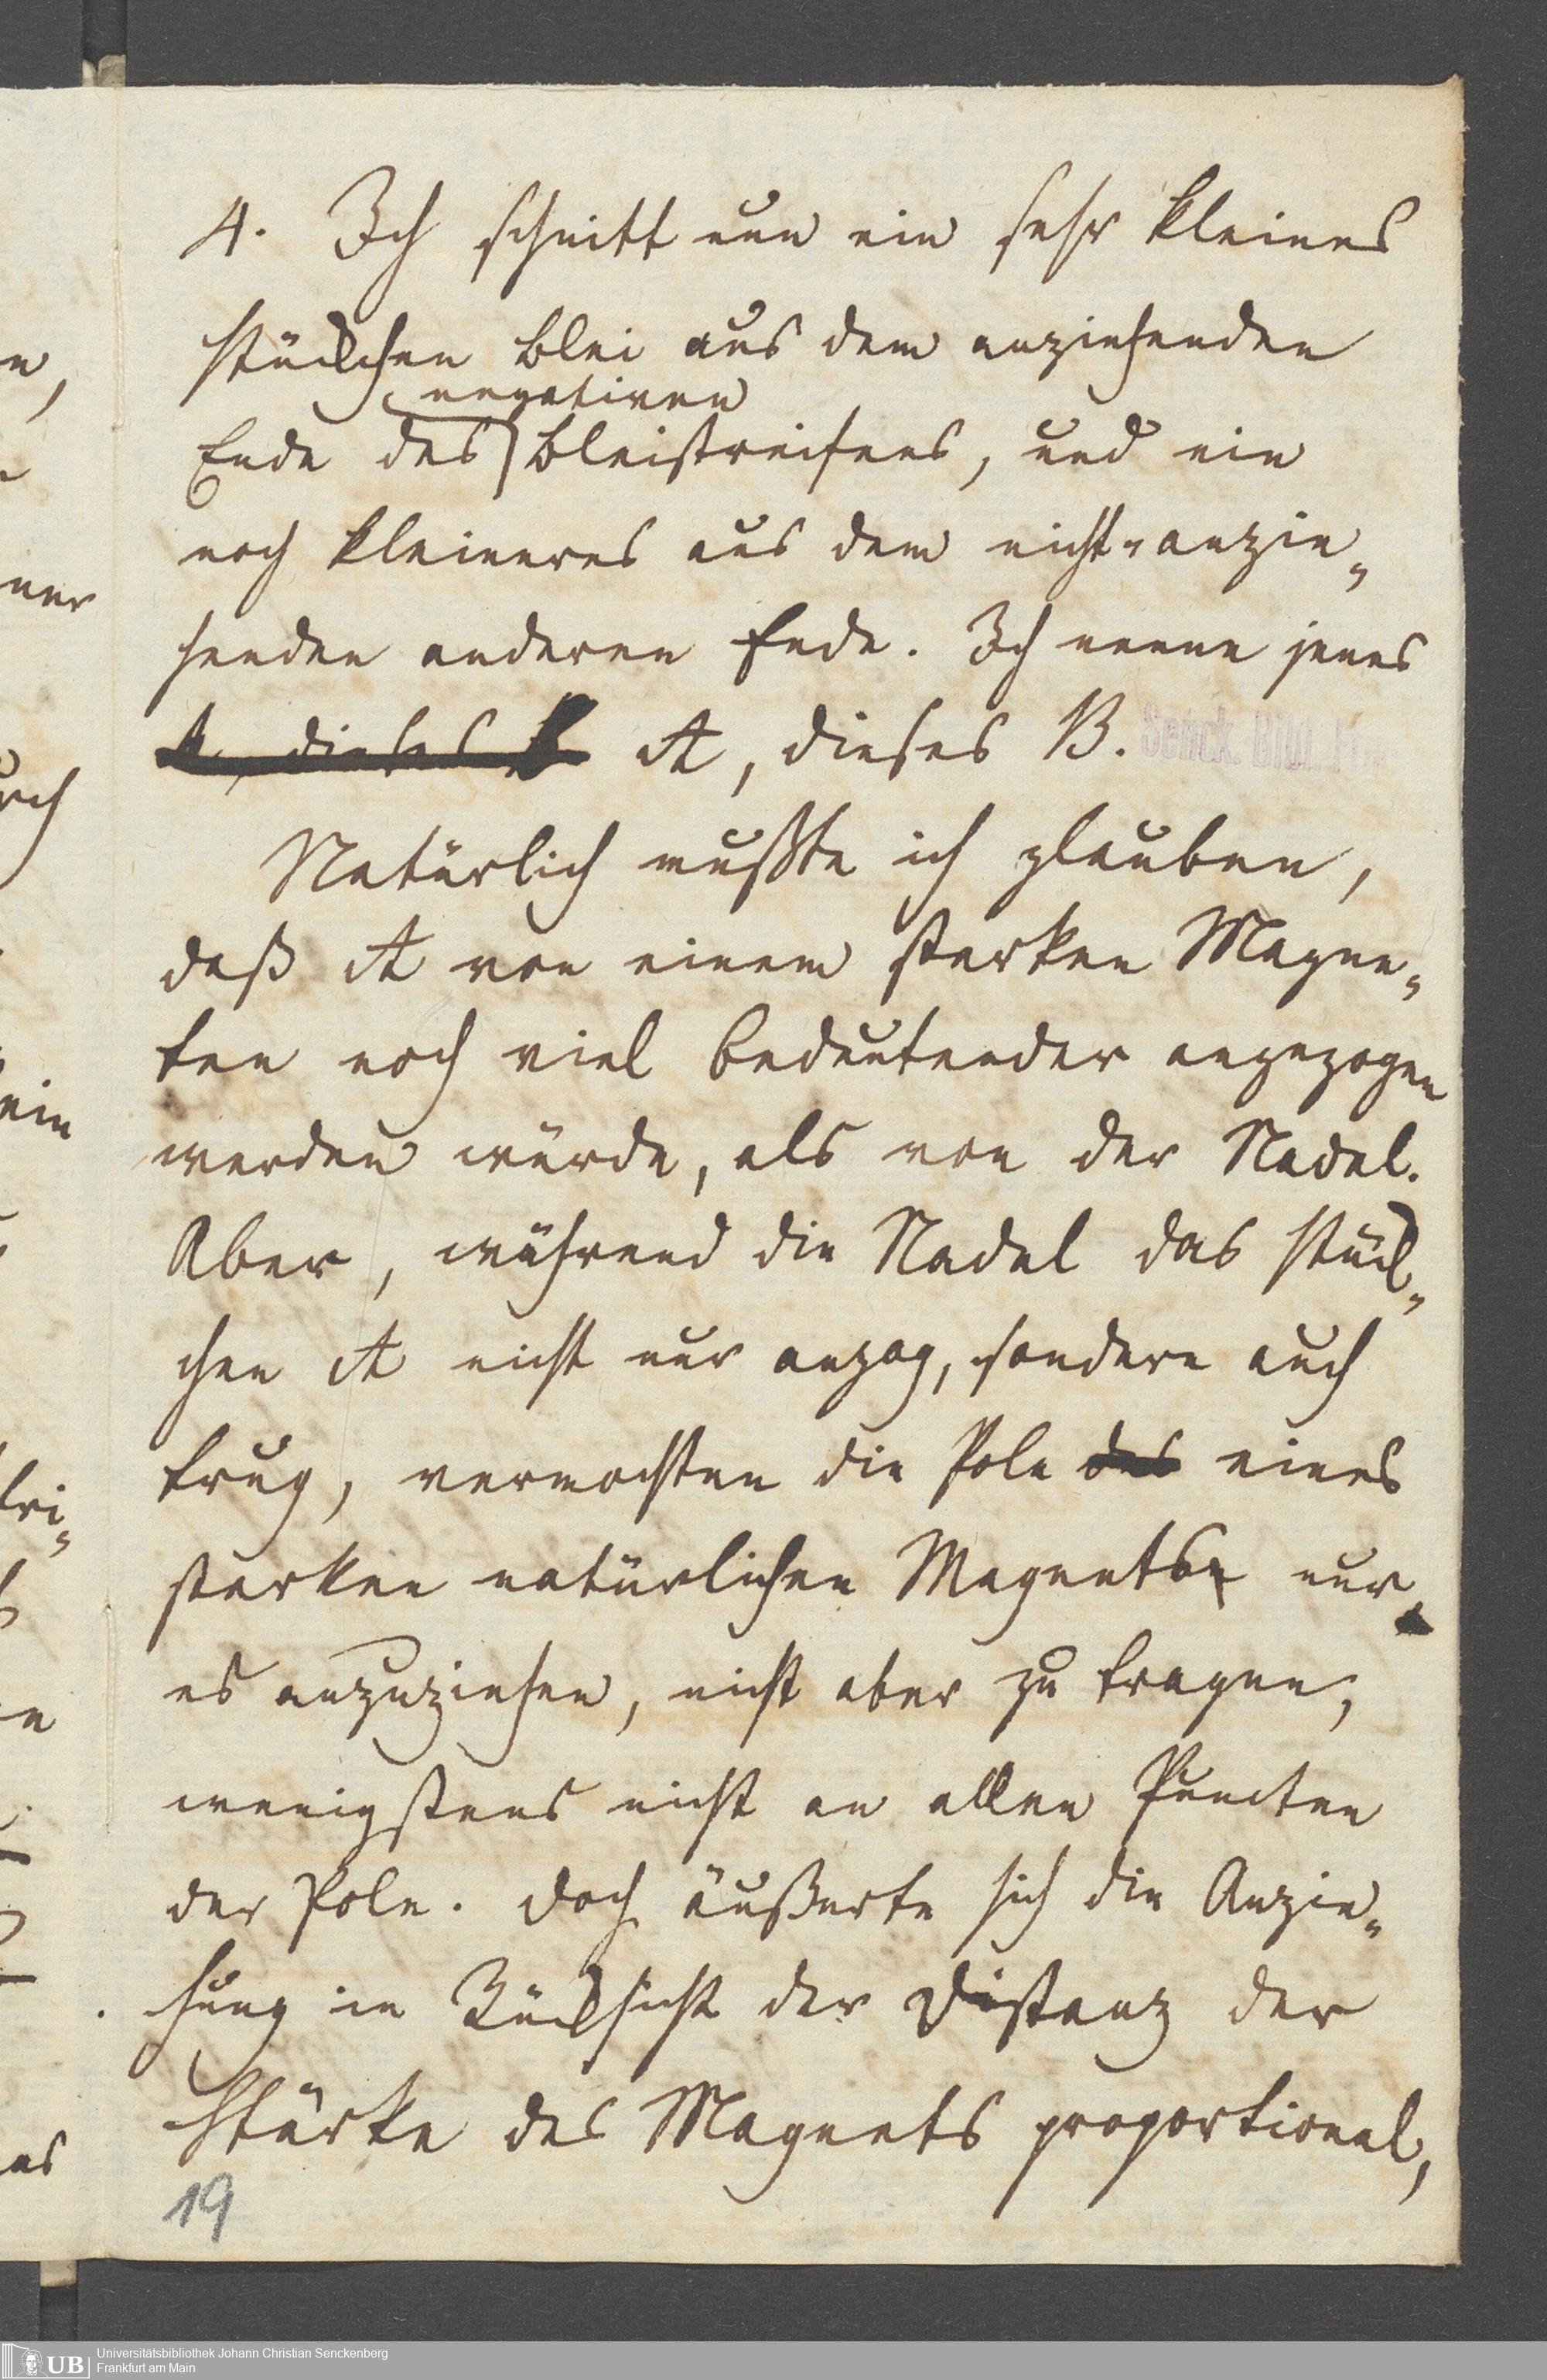 4. Ich schnitt nun ein sehr kleines
Stückchen Blei aus dem anziehenden
negativen
Ende des Bleistreifens, und ein
noch kleineres aus dem nicht-anzie-
henden anderen Ende. Ich nenne jenes
b, dieses B A, dieses B.
Senck. Bibl.
Natürlich mußte ich glauben,
daß A von einem starken Magne-
ten noch viel bedeutender angezogen
werden würde, als von der Nadel.
Aber, während die Nadel das Stück-
chen A nicht nur anzog, sondern auch
trug, vermochten die Pole des eines
starken natürlichen Magnets nur
es anzuziehen, nicht aber zu tragen,
wenigstens nicht an allen Puncten
der Pole. Doch äußerte sich die Anzie-
hung in Rücksicht der Distanz der
Stärke des Magnets proportional,
19
UB
Universitätsbibliothek Johann Christian Senckenberg
Frankfurt am Main